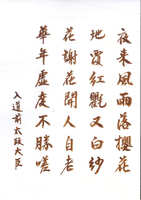 夜来風雨落櫻花
地覆紅氍又白紗
花謝花開人自老
華年虛度不勝嗟
入道前太政大臣